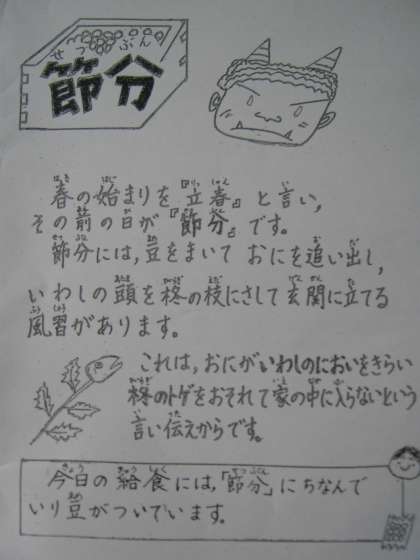 せつぶん
節分
春の始まりを『立春』と言い,
その前の日が『節分』です。
節分には,豆をまいて おにを追い出し,
いわしの頭を柊の枝にさして玄関に立てる
風習があります。
これは,おにがいわしのにおいをきらい
柊のトゲをおそれて家の中に入らないという
言い伝えからです。
今日の給食には,「節分」にちなんで
いり豆がついています。